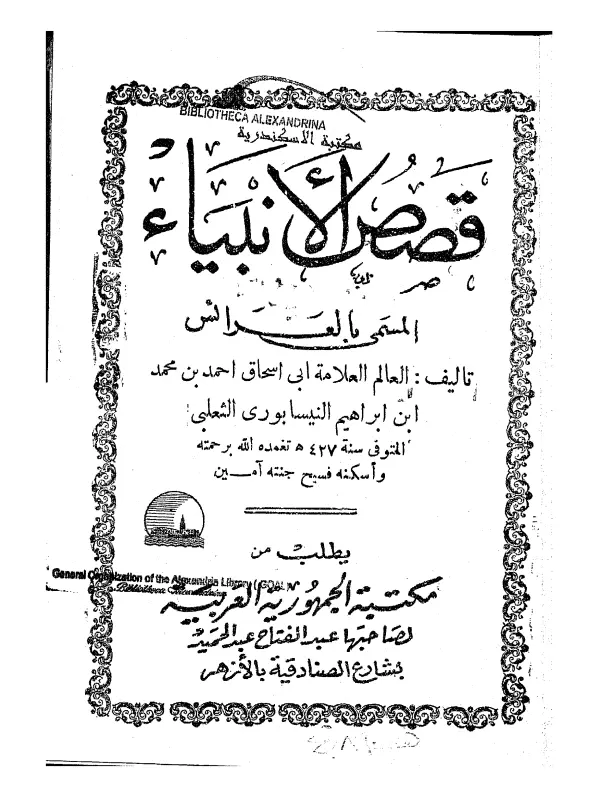 BIBLIOTHECA ALEXANDRINA
مكتبة الاسكندرية
قصص الأنبياء
المسمى بالعرائس
تاليف : العالم العلامة ابى اسحاق احمد بن محمد
ابن ابراهيم النيسابورى الثعلبى
المتوفى سنة ٤٢٧ ه تغمده الله برحمته
وأسكنه فسيح جنته آمــين
يطلب من
General Organization of the Alexandria Library (GOAL)
Bibliotheca Alexandrina
مكتبة الجمهورية العربية
لصاحبها عبد الفتاح عبد الحميد
بشارع الصنادقية بالأزهر